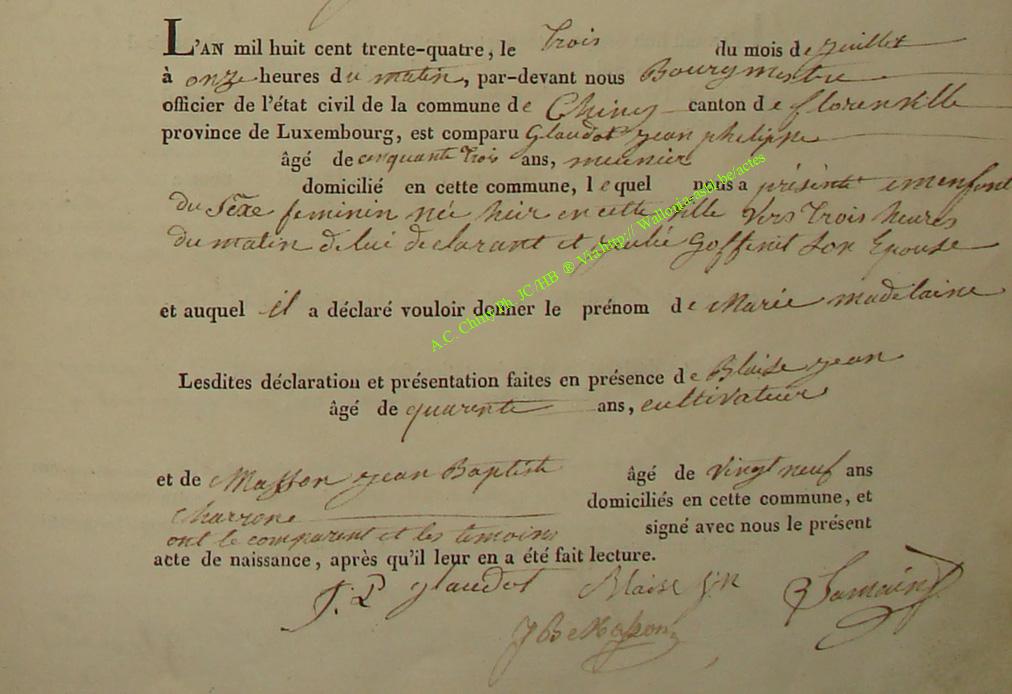 L'AN mil huit cent trente-quatre, le trois du mois de juillet
à onze heures du matin, par-devant nous Bourgmestre
officier de l'état civil de la commune de Chiny canton de florenville
province de Luxembourg, est comparu Glaudot jean philippe
âgé de cinquante trois ans, meunier
domicilié en cette commune, lequel nous a présenté un enfant
du Sexe feminin née hier en cette ville vers trois heures
du matin de lui declarant et julie Goffinet son Epouse
et auquel il a déclaré vouloir donner le prénom de Marie madelaine
Lesdites déclaration et présentation faites en présence de Blaise jean
âgé de quarente ans, cultivateur
et de Masson jean Baptiste âgé de vingt neuf ans
charrone domiciliés en cette commune, et
ont le comparent et les temoins signé avec nous le présent
acte de naissance, après qu'il leur en a été fait lecture.
J. P glaudot Blaise
J B Masson
A.C. Chiny Ph. JC/HB ® Via http:// Wallonia.asbl.be/actes